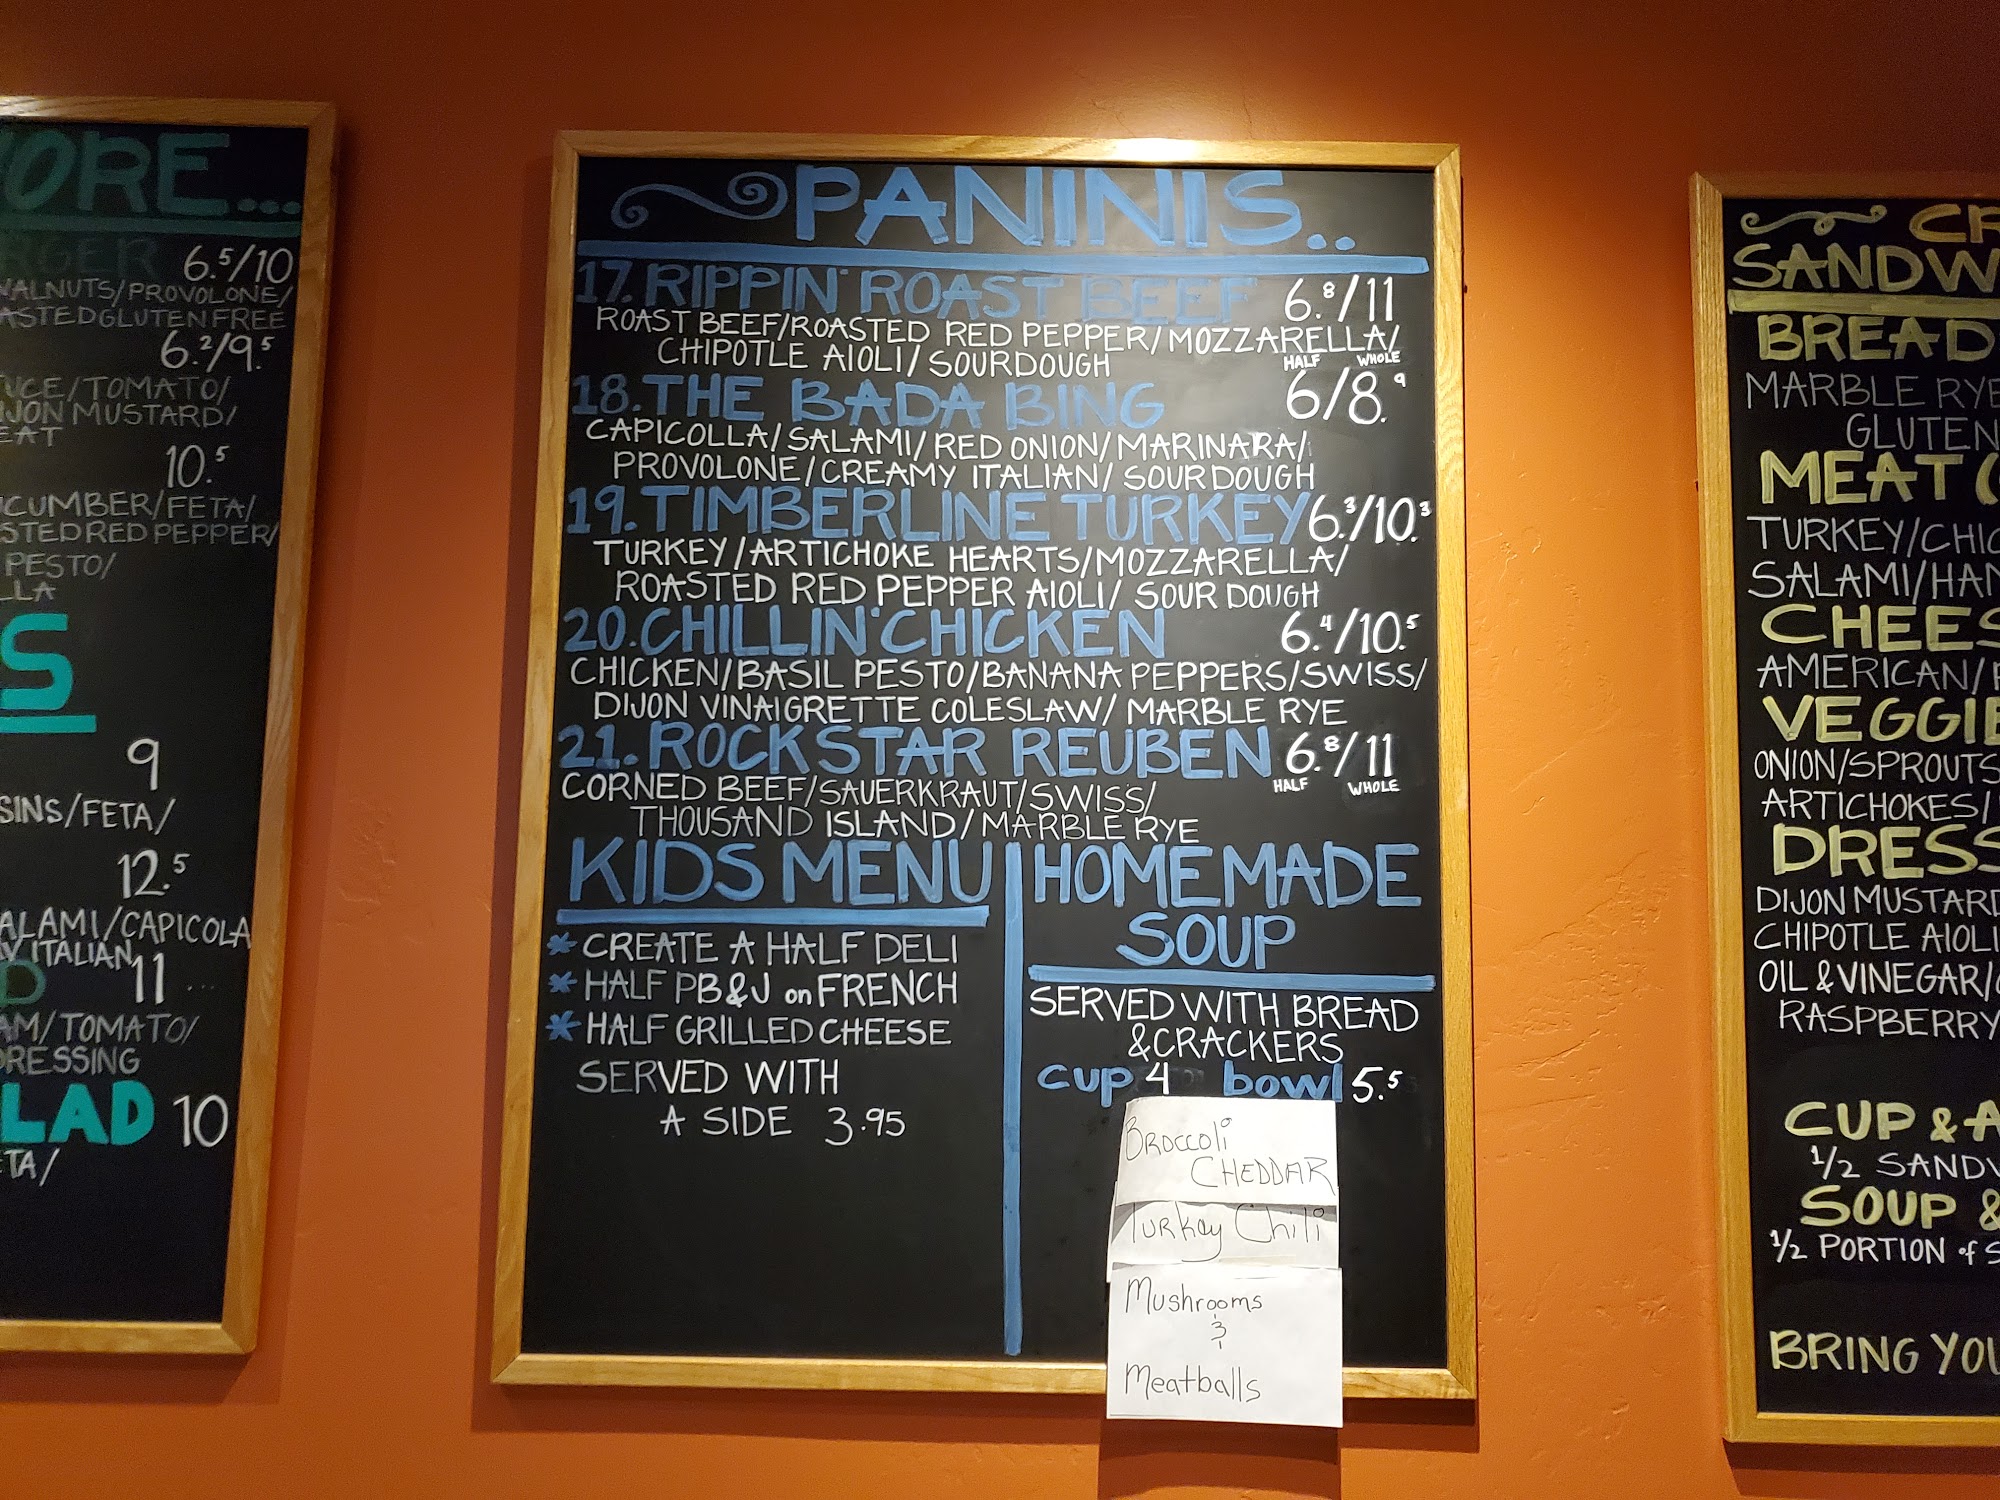 ORE...
RGER 6.5/10
WALNUTS/PROVOLONE/
ASTED GLUTEN FREE
6.2/9.5
UCE/TOMATO/
IJON MUSTARD/
EAT
10.5
CUMBER/FETA/
STED RED PEPPER/
PESTO/
LLA
S
9
SINS/FETA/
12.5
ALAMI/CAPICOLA
Y ITALIAN
D 11
AM/TOMATO/
DRESSING
LAD 10
ETA/
PANINIS..
17. RIPPIN' ROAST BEEF 6.8/11
ROAST BEEF/ROASTED RED PEPPER/MOZZARELLA/
CHIPOTLE AIOLI/SOURDOUGH HALF WHOLE
18. THE BADA BING 6/8.9
CAPICOLLA/SALAMI/RED ONION/MARINARA/
PROVOLONE/CREAMY ITALIAN/SOURDOUGH
19. TIMBERLINE TURKEY 6.3/10.3
TURKEY/ARTICHOKE HEARTS/MOZZARELLA/
ROASTED RED PEPPER AIOLI/SOURDOUGH
20. CHILLIN' CHICKEN 6.4/10.5
CHICKEN/BASIL PESTO/BANANA PEPPERS/SWISS/
DIJON VINAIGRETTE COLESLAW/MARBLE RYE
21. ROCKSTAR REUBEN 6.8/11
HALF WHOLE
CORNED BEEF/SAUERKRAUT/SWISS/
THOUSAND ISLAND/MARBLE RYE
KIDS MENU
* CREATE A HALF DELI
* HALF PB&J on FRENCH
* HALF GRILLED CHEESE
SERVED WITH
A SIDE 3.95
HOMEMADE
SOUP
SERVED WITH BREAD
& CRACKERS
CUP 4 bowl 5.5
Broccoli
CHEDDAR
Turkey Chili
Mushrooms
&
Meatballs
CR
SANDW
BREAD
MARBLE RYE
GLUTEN
MEAT (
TURKEY/CHIC
SALAMI/HAM
CHEES
AMERICAN/
VEGGIE
ONION/SPROUTS
ARTICHOKES/
DRESS
DIJON MUSTARD
CHIPOTLE AIOLI
OIL & VINEGAR/
RASPBERRY
CUP & A
1/2 SANDW
SOUP &
1/2 PORTION of S
BRING YOU